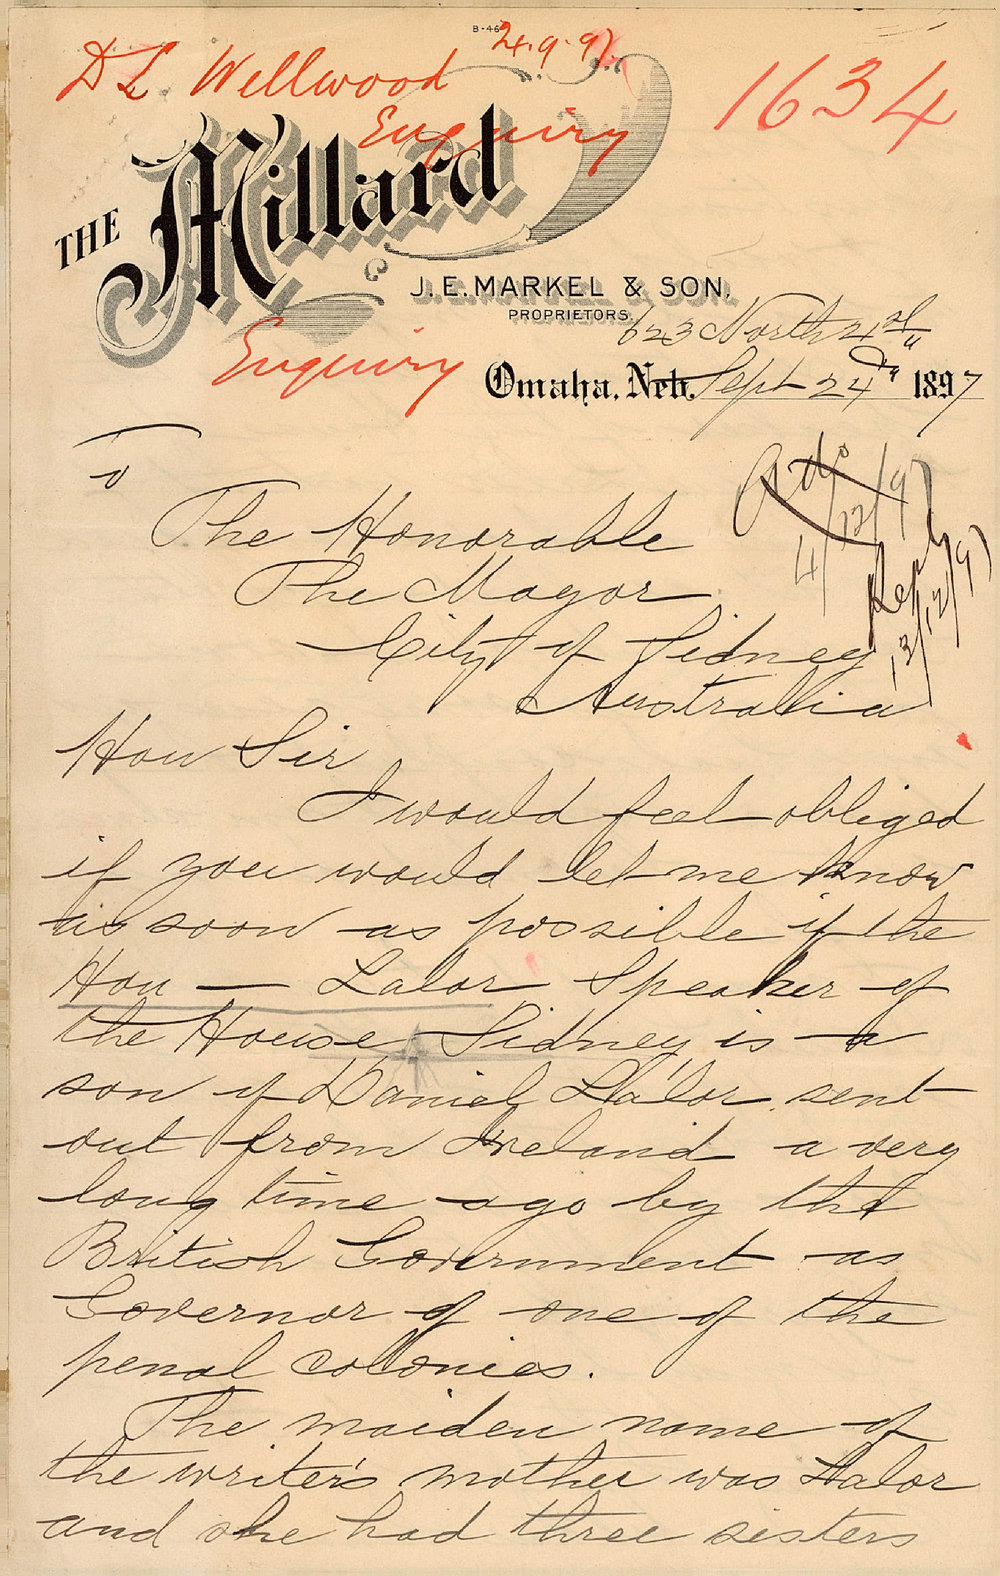 B-46
24.9.97
D L Wellwood
1634
Enquiry
THE Millard
J. E. MARKEL & SON,
PROPRIETORS.
623 North 21st
Enquiry
Omaha, Neb. Sept 24th 1897
To
The Honorable
The Mayor
City of Sidney
Australia
4/12/97
Reply
13/12/97
Hon Sir
I would feel obliged
if you would let me know
as soon as possible if the
Hon — Lalor Speaker of
the House Sidney is a
son of Daniel Lalor sent
out from Ireland a very
long time ago by the
British Government as
Governor of one of the
penal colonies.
The maiden name of
the writer's mother was Lalor
and she had three sisters